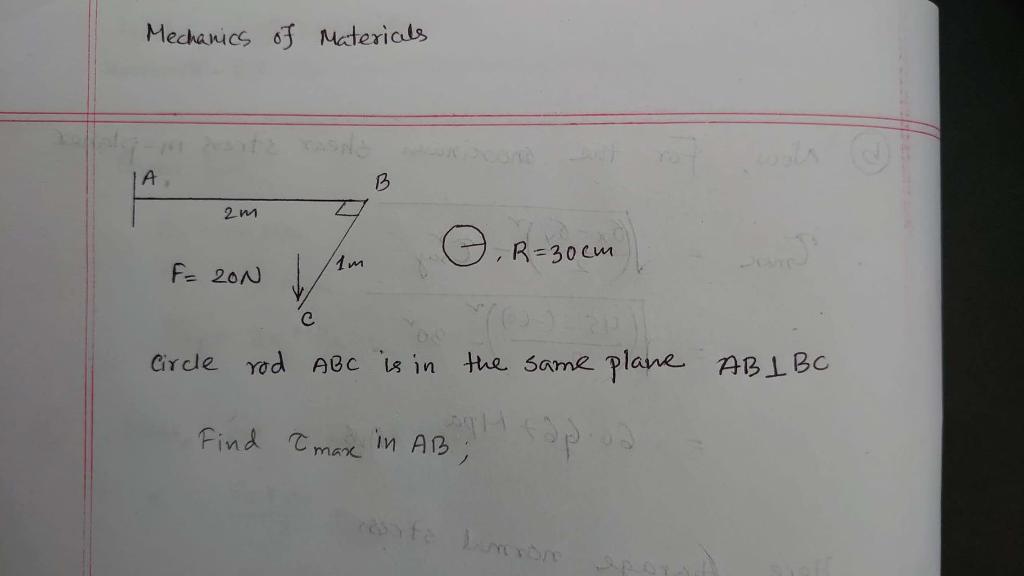 Mechanics of Materials
A
B
2m
F= 20N
1m
, R=30cm
C
Circle rod ABC is in the same plane AB⊥BC
Find τmax in AB;